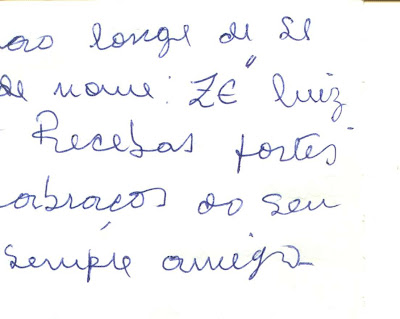 ao longe de se
de nome: ZÉ" luiz
Recebas fortes
abraços do seu
sempre amigo